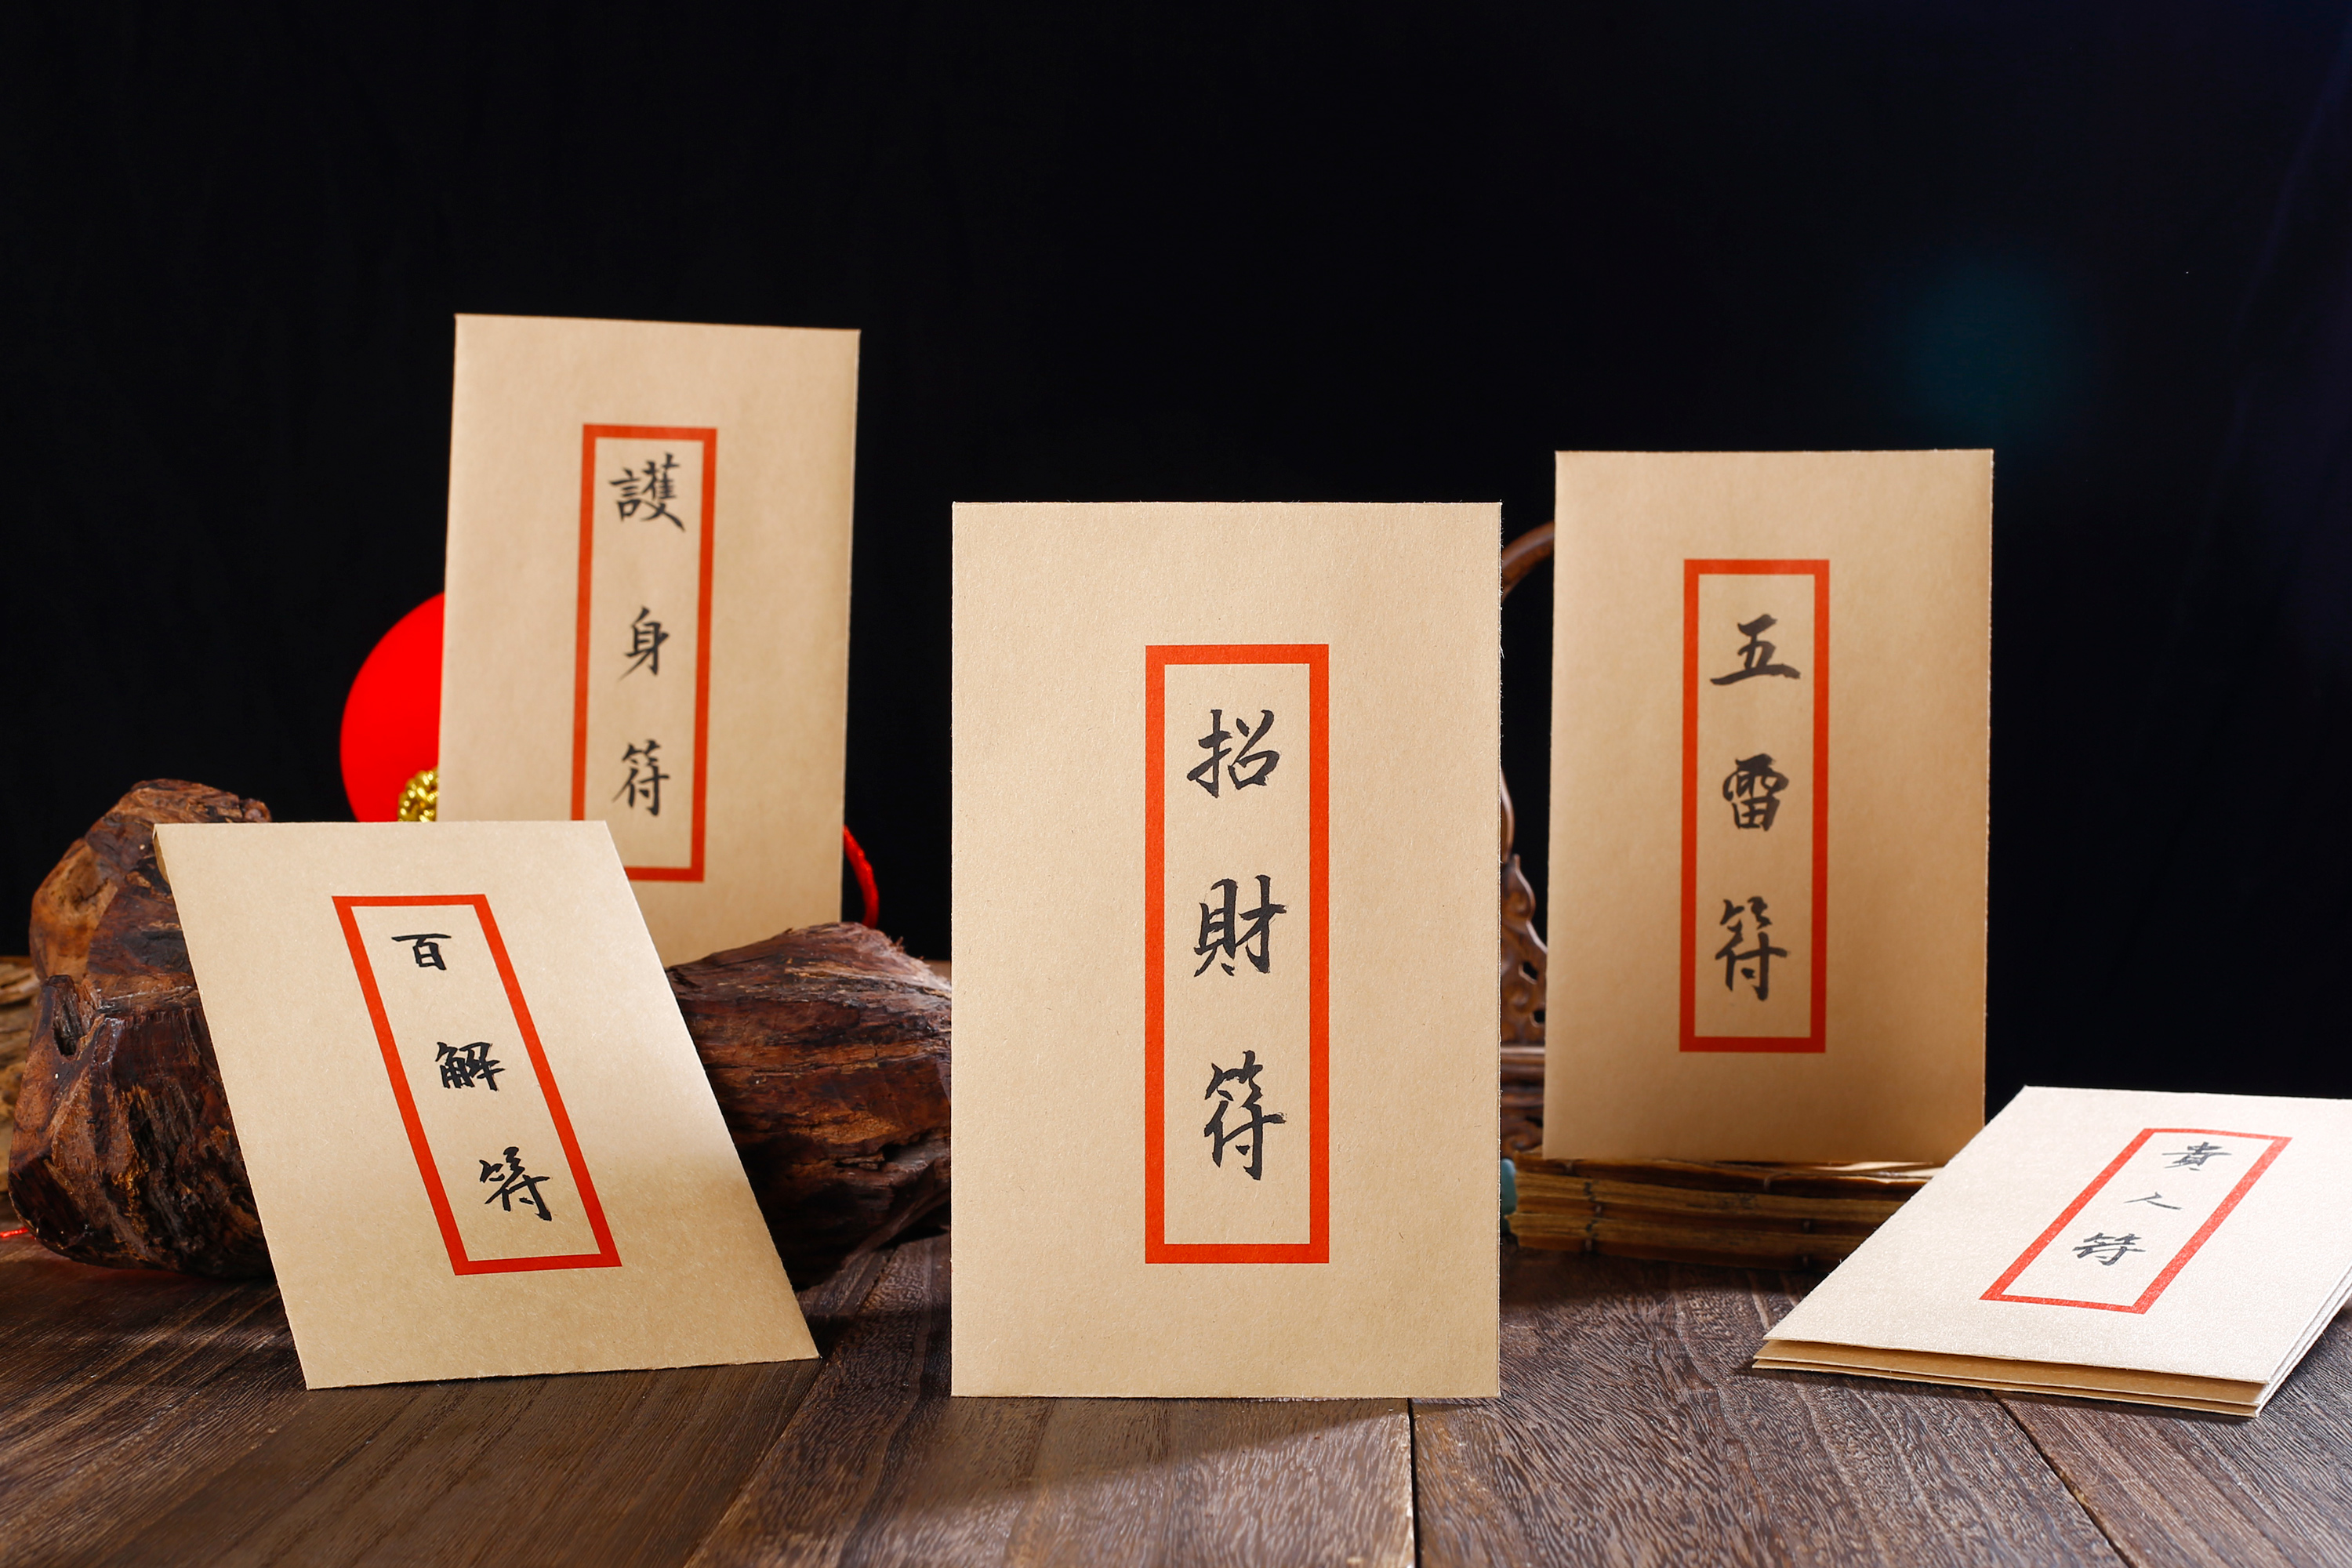 護身符
百解符
招財符
五雷符
貴人符